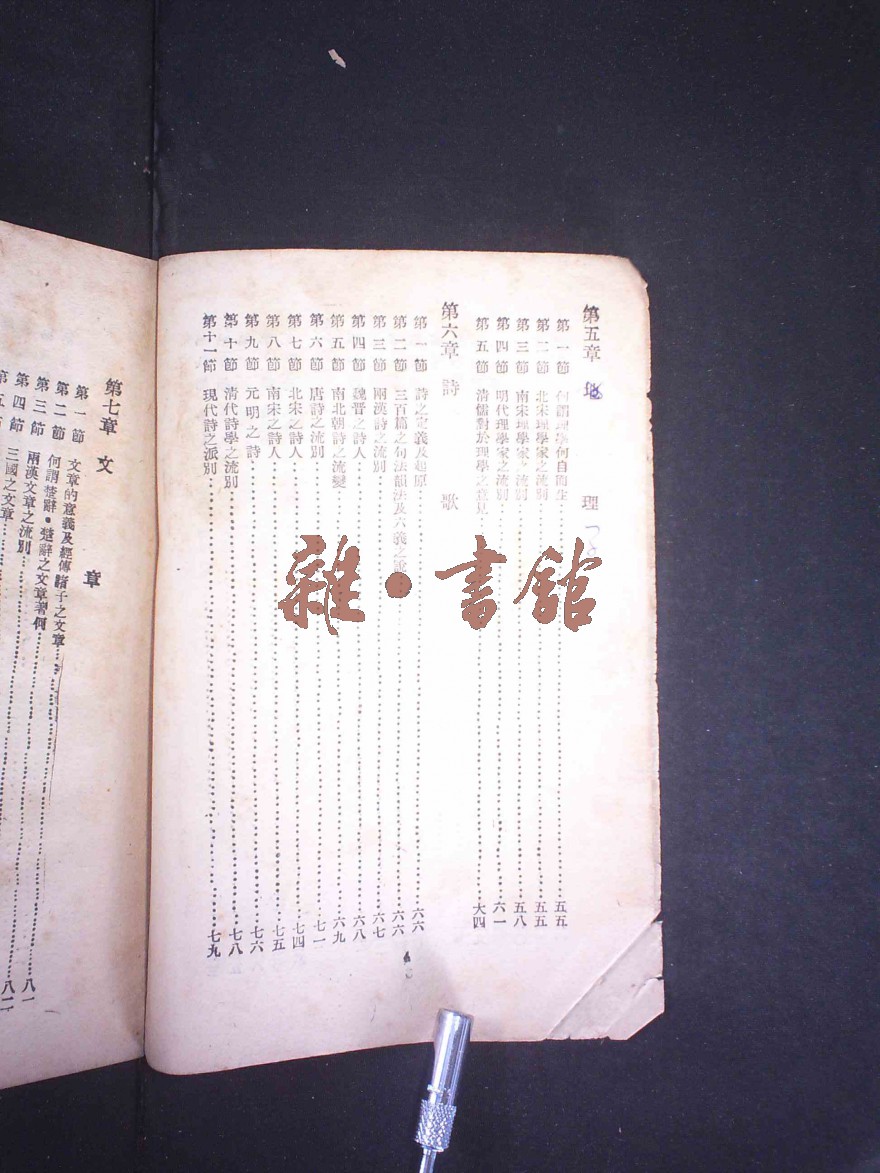 第五章 地 理
第一節 何謂理學何自而生 五五
第二節 北宋理學家之流別 五五
第三節 南宋理學家之流別 五八
第四節 明代理學家之流別 六一
第五節 清儒對於理學之意見 大四
第六章 詩 歌
第一節 詩之定義及起原 六六
第二節 三百篇之句法韻法及六義之說 六六
第三節 兩漢詩之流別 六七
第四節 魏晉之詩人 六八
第五節 南北朝詩之流變 六九
第六節 唐詩之流別 七一
第七節 北宋之詩人 七四
第八節 南宋之詩人 七五
第九節 元明之詩 七六
第十節 清代詩學之流別 七八
第十一節 現代詩之派別 七九
第七章 文 章
第一節 文章的意義及經傳諸子之文章
第二節 何謂楚辭•楚辭之文章若何
第三節 兩漢文章之流別 八一
第四節 三國之文章 八二
第五節
雜•書館